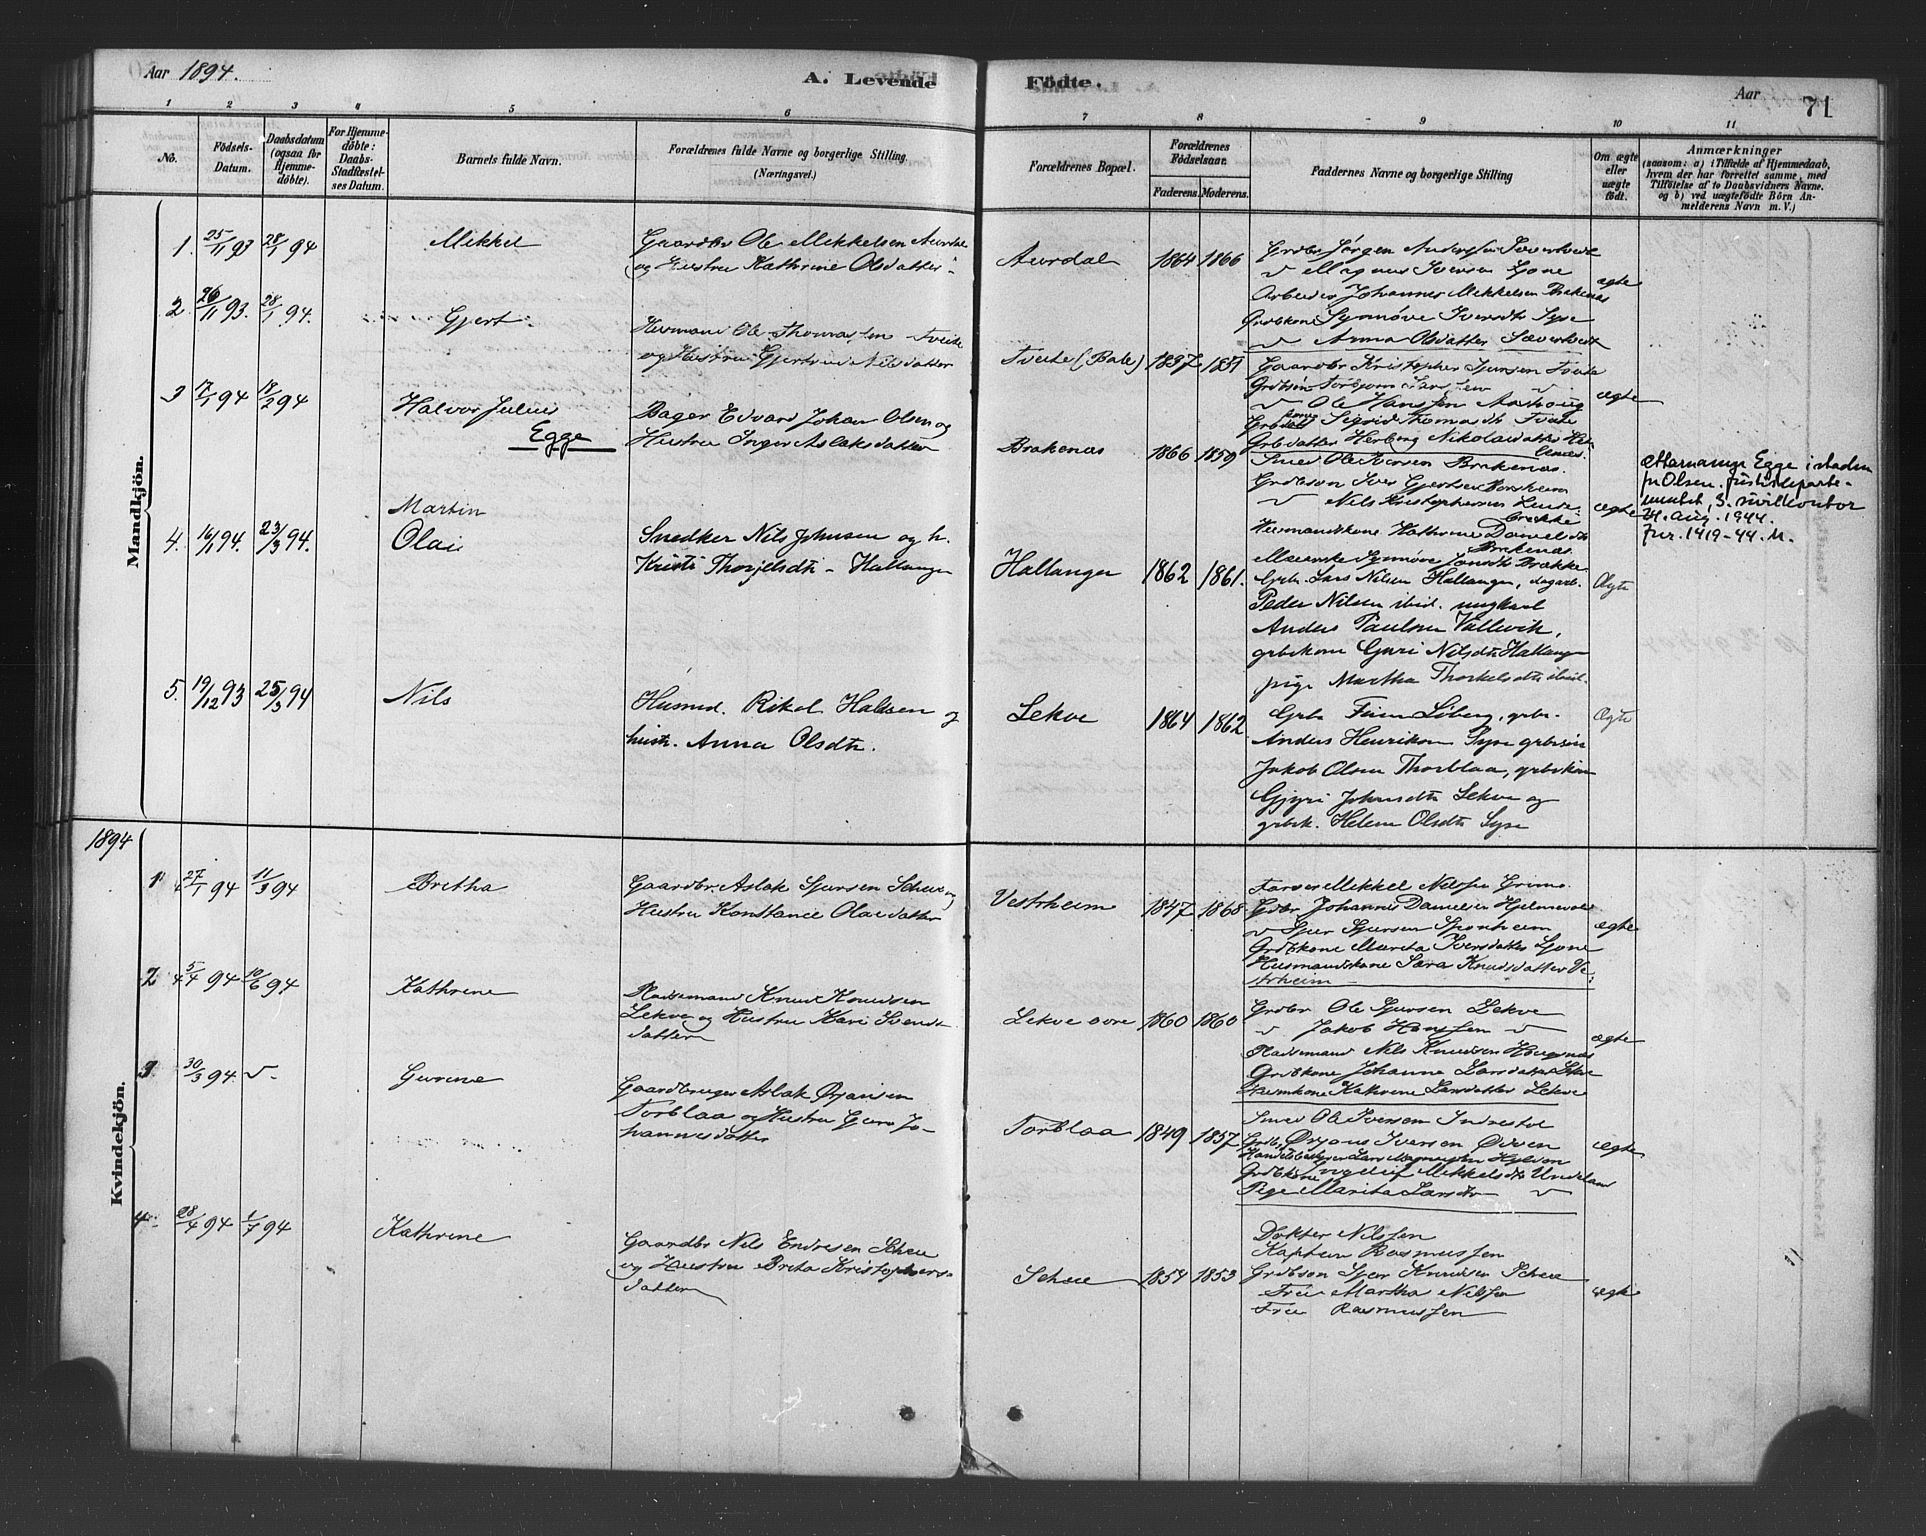 Aar 1894.
A. Levende Födte.
Aar
71
1 2 3 4 5 6 7 8 9 10 11
No.
Födsels-
Datum.
Daabsdatum
(ogsaa for
Hjemme-
döbte).
For Hjemme-
döbte:
Daabs-
Stadfestel-
ses Datum.
Barnets fulde Navn.
Forældrenes fulde Navne og borgerlige Stilling.
(Næringsvei.)
Forældrenes Bopæl.
Forældrenes
Födselsaar.
Faderens. Moderens.
Faddernes Navne og borgerlige Stilling
Om ægte
eller
uægte
födt.
Anmærkninger
(saasom: a) i Tilfælde af Hjemmedaab,
hvem der har forrettet samme, med
Tilföielse af to Daabsvidners Navne.
og b) ved uægtefödte Börn An-
melderens Navn m. V.)
Mandkjön.
1. 25/11 93 28/1 94
Mikkel
Gaardbr Ole Mikkelsen Aurdal
og Hustru Kathrine Olsdatter
Aurdal 1864 1866
Grdbr Jörgen Andersen
v Magnus Iversen Lone
Arbeider Johannes Mikkelsen Brakenæs
Grdbkone Synnöve Iversdtr Syse
v Anna Olsdatter
ægte
2. 26/11 93. 28/1 94.
Gjert
Husmand Ole Thomassen Tveite
og Hustru Gjertrud Nilsdatter
Tveite (Bale) 1837 1851
Gaardbr Kristopher Sjursen Tveite
Grdbsön Torbjörn Larssen v
v Ole Hanssen
Sigrid Thomasdt Tveite
Grbdatter Herborg Nikolaidatter
ægte
3 17/1 94 18/2 94
Halvor Julius
Egge
Bager Edvard Johan Olsen og
Hustru Inger Aslaksdatter
Brakenæs 1866 1859
Smed Ole Iversen Brakenæs.
Grdbson Iver Gjertsen
v Nils Kristophersen
Husmandskone Kathrine Danielsdt
Brakenæs.
Synnöve Brække
ægte
Etternamnet Egge i staden
for Olsen. Justisdeparte-
mentet, 3. sivilkontor
21. aug. 1944.
jnr. 1419-44. M.
4. 16/1 94. 23/3 94.
Martin
Olai
Snedker Nils Johnsen og h.
Kristi Thorjelsdt - Hallanger
Hallanger 1862 1861.
Grbr. Lars Nilsen Hallanger, dagarb.
Peder Nilsen ibid. ungkarl
Anders Paulsen Vallevik,
grbkone Guri Nilsdtr Hallanger
pige Martha Thorkelsdtr ibid.
Ægte
5. 19/12 93 25/3 94
Nils
Husmd. Rikol Haldsen og
hustr. Anna Olsdtr.
Lekve 1864 1862.
Grbr Finn Liberg, grbr.
Anders Henrikson Syse grbsön
Jakob Olsen Thorblaa, grbkone
Gjyri Johnsdtr Lekve og
grbk. Helene Olsdtr Syse
Ægte
1894
Kvindekjön.
1 27/1 94 11/3 94
Bretha
Gaardbr. Aslak Sjursen Scheie og
Hustru Konstance Olaidatter
Vestrheim 1847 1868
Farver Mikkel Nilssen Grimo
Gdbr Johannes Danielsen Hjelmevold
v Sjur Sjursen Sponheim
Grdbkone Marita Iversdatter Lione
Husmandskone Sara Knudsdatter Ve-
strheim
ægte
2 5/4 94 10/6 94
Kathrine
Pladsemand Knud Knudsen
Lekve og Hustru Kari Svends-
datter
Lekve övre 1860 1860
Grdbr Ole Sjursen Lekve
v Jakob Hanssen v
Pladsemand Nils Knudsen
Grdbkone Johanna Larsdatter Lekve
Husmkone Kathrine Larsdatter Lekve
ægte
3 30/3 94 v
Gurine
Gaardbruger Aslak Örjansen
Torblaa og Hustru Guro Jo-
hannesdatter
Torblaa 1849 1857
Smed Ole Iversen Indrestol
Grdb. Örjans Iversen
Ingeleif Mikkelsdtr Undeland
Pige Marita Larsdtr v
ægte
4 28/4 94 1/7 94
Kathrine
Gaardbr Nils Endresen Scheie
og Hustru Brita Kristophers-
datter
Scheie 1854 1853
Doktor Nilssen
Kaptein Rasmussen
Grdbsön Sjur Knudsen Scheie
Frue Martha Nilssen
Frue Rasmussen
ægte